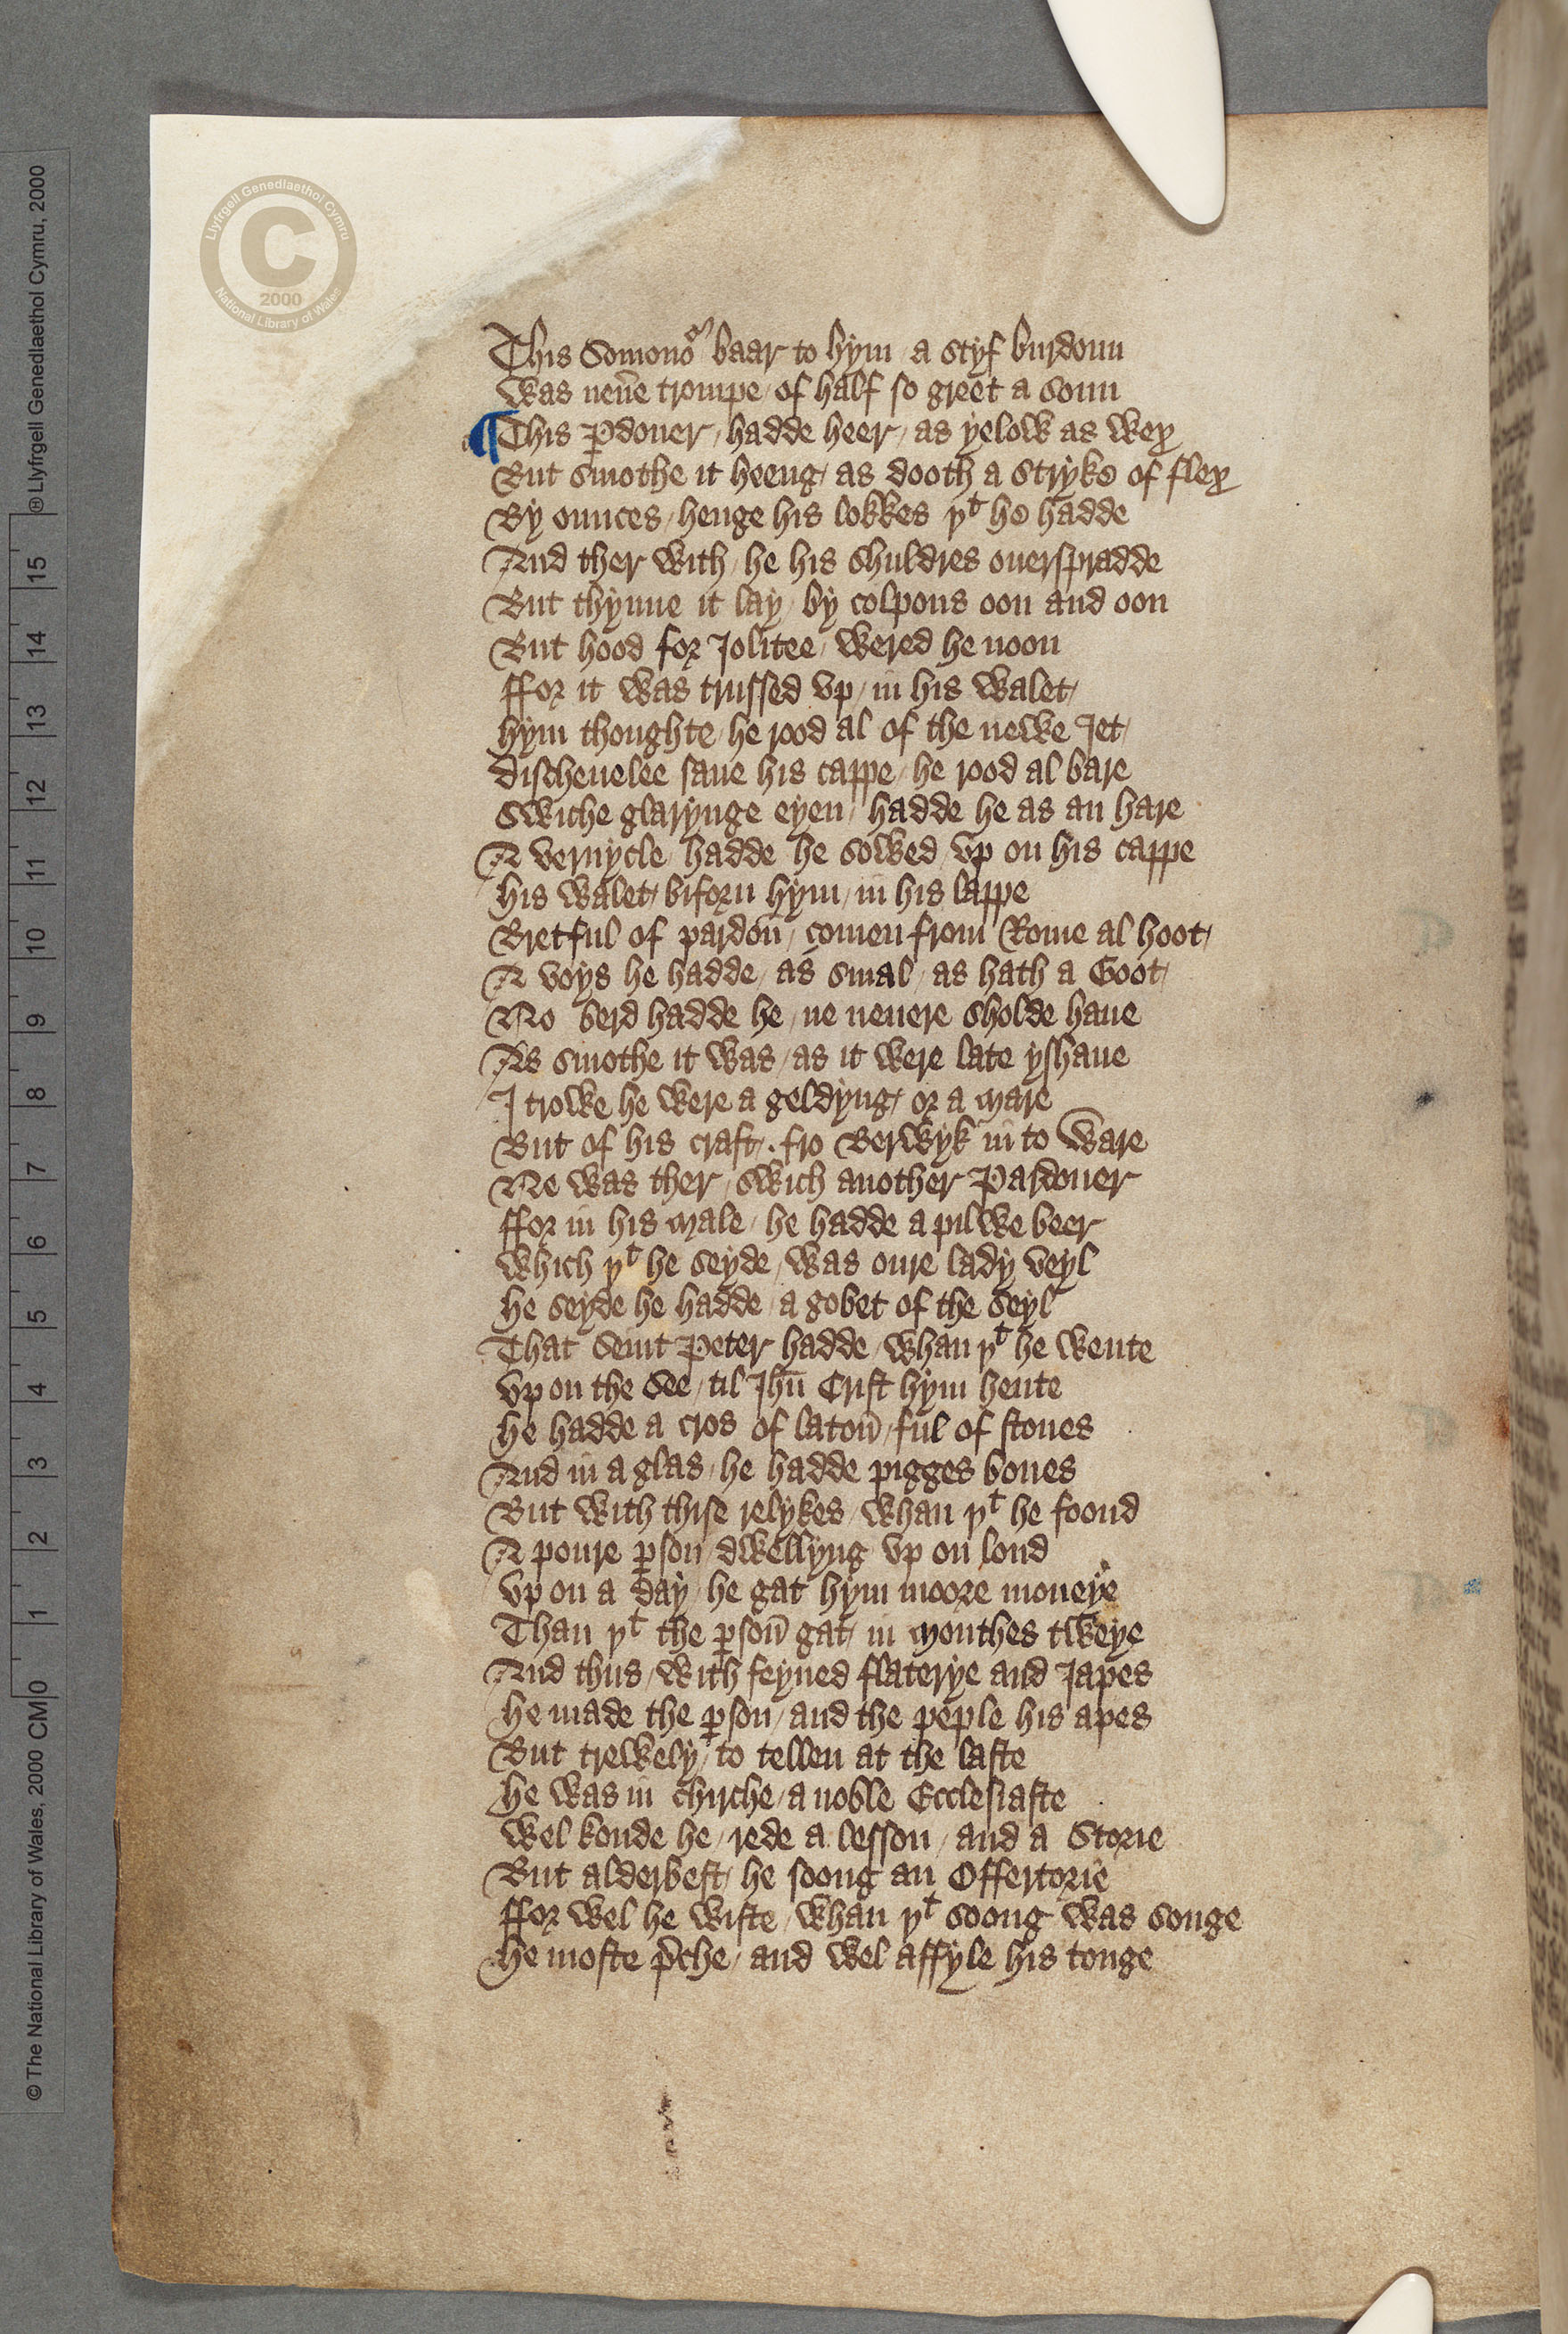 This Somonor baar to hym / a styf burdoun
was neuẽe trompe / of half so greet a soun
¶ This ꝑdoner / hadde heer / as yelow as wex
But smothe it heeng / as dooth a stryke of flex
By ounces / henge his lokkes yᵗ he hadde
And ther with / he his shuldres ouerspradde
But thynne it lay / by colpons oon and oon
But hood for Jolitee / wered he noon
ffor it was trussed vp / in his walet /
hym thoughte / he rood al of the newe Jet /
discheuelee saue his cappe / he rood al bare
Swiche glarynge eyen / hadde he as an hare
A vernycle / hadde he sowed / vp on his cappe
his walet / biforn hym / in his lappe
Bretful of pardoñ / comen from Rome al hoot /
A voys he hadde / as smal / as hath a Goot /
No berd hadde he / ne neuere sholde haue
As smothe it was / as it were late yshaue
I trowe he were a geldyng / or a mare
But of his craft / . fro Berwyk in to ware
Ne was ther / swich another Pardoner
ffor in his male / he hadde a pilwe beer
which yᵗ he seyde / was oure lady veyl
he seyde he hadde / a gobet of the seyl
That Seint Peter hadde / whan yᵗ he wente
vp on the See / til Jhũ Crist hym hente
he hadde a cros of latoñ / ful of stones
And in a glas / he hadde pigges bones
But with thise relykes / whan yᵗ he foond
A poure ꝑson / dwellyng vp on lond
vp on a day / he gat hym moore moneye
Than yᵗ the ꝑsoñ gat / in monthes tweye
And thus / with feyned flaterye and Japes
he made the ꝑson / and the peple his apes
But trewely / to tellen at the laste
he was in chirche / a noble Ecclesiaste
wel konde he / rede a lesson / and a Storie
But alderbest / he soong an Offertorie
ffor wel he wiste / whan yᵗ soong was songe
he moste p̃che / and wel affyle his tonge
Llyfrgell Genedlaethol Cymru
C
2000
National Library of Wales
© The National Library of Wales, 2000 CM 0 1 2 3 4 5 6 7 8 9 10 11 12 13 14 15 ® Llyfrgell Genedlaethol Cymru, 2000